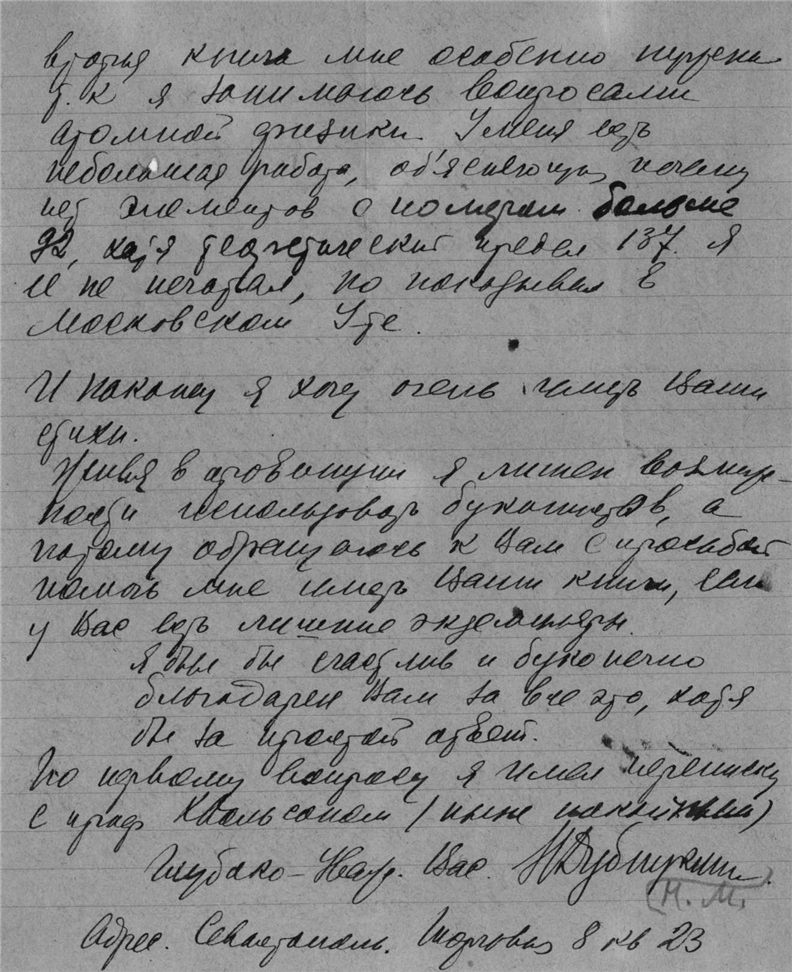 вторая книга мне особенно нужна
т.к я занимаюсь вопросами
атомной физики. У меня есть
небольшая работа, об'ясняющая почему
нет элементов с номером больше
92, хотя теоретический предел 137. Я
её не печатал, но показывал в
Московском У-те.
И наконец я хочу очень иметь Ваши
стихи.
Живя в провинции я лишен возмож-
ности использовать букинистов, а
потому обращаюсь к Вам с просьбой
помочь мне иметь Ваши книги, если
у Вас есть лишние экземпляры.
Я был бы счастлив и бесконечно
благодарен Вам за все это, хотя
бы за простой ответ.
По первому вопросу я имел переписку
с проф Хвольсоном (ныне покойный)
Глубоко-Уваж. Вас.
(Н.М.)
Адрес. Севастополь. Торговая 8 кв 23